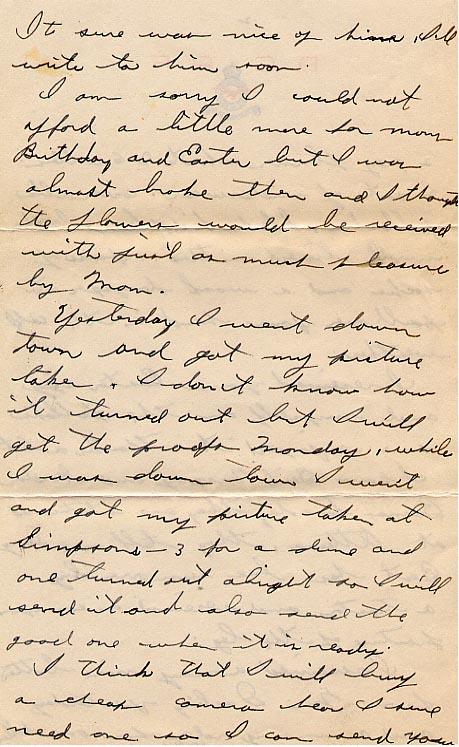 It sure was nice of him, I'll
write to him soon.
I am sorry I could not
afford a little more for mom
Birthday and Easter but I was
almost broke then and I thought
the flowers would be received
with just as much pleasure
by Mom.
Yesterday I went down
town and got my picture
taken. I don't know how
it turned out but I will
get the proofs Monday, while
I was down town I went
and got my picture taken at
Simpsons - 3 for a dime and
one turned out alright so I will
send it and also send the
good one when it is ready.
I think that I will buy
a cheap camera hear I sure
need one so I can send you